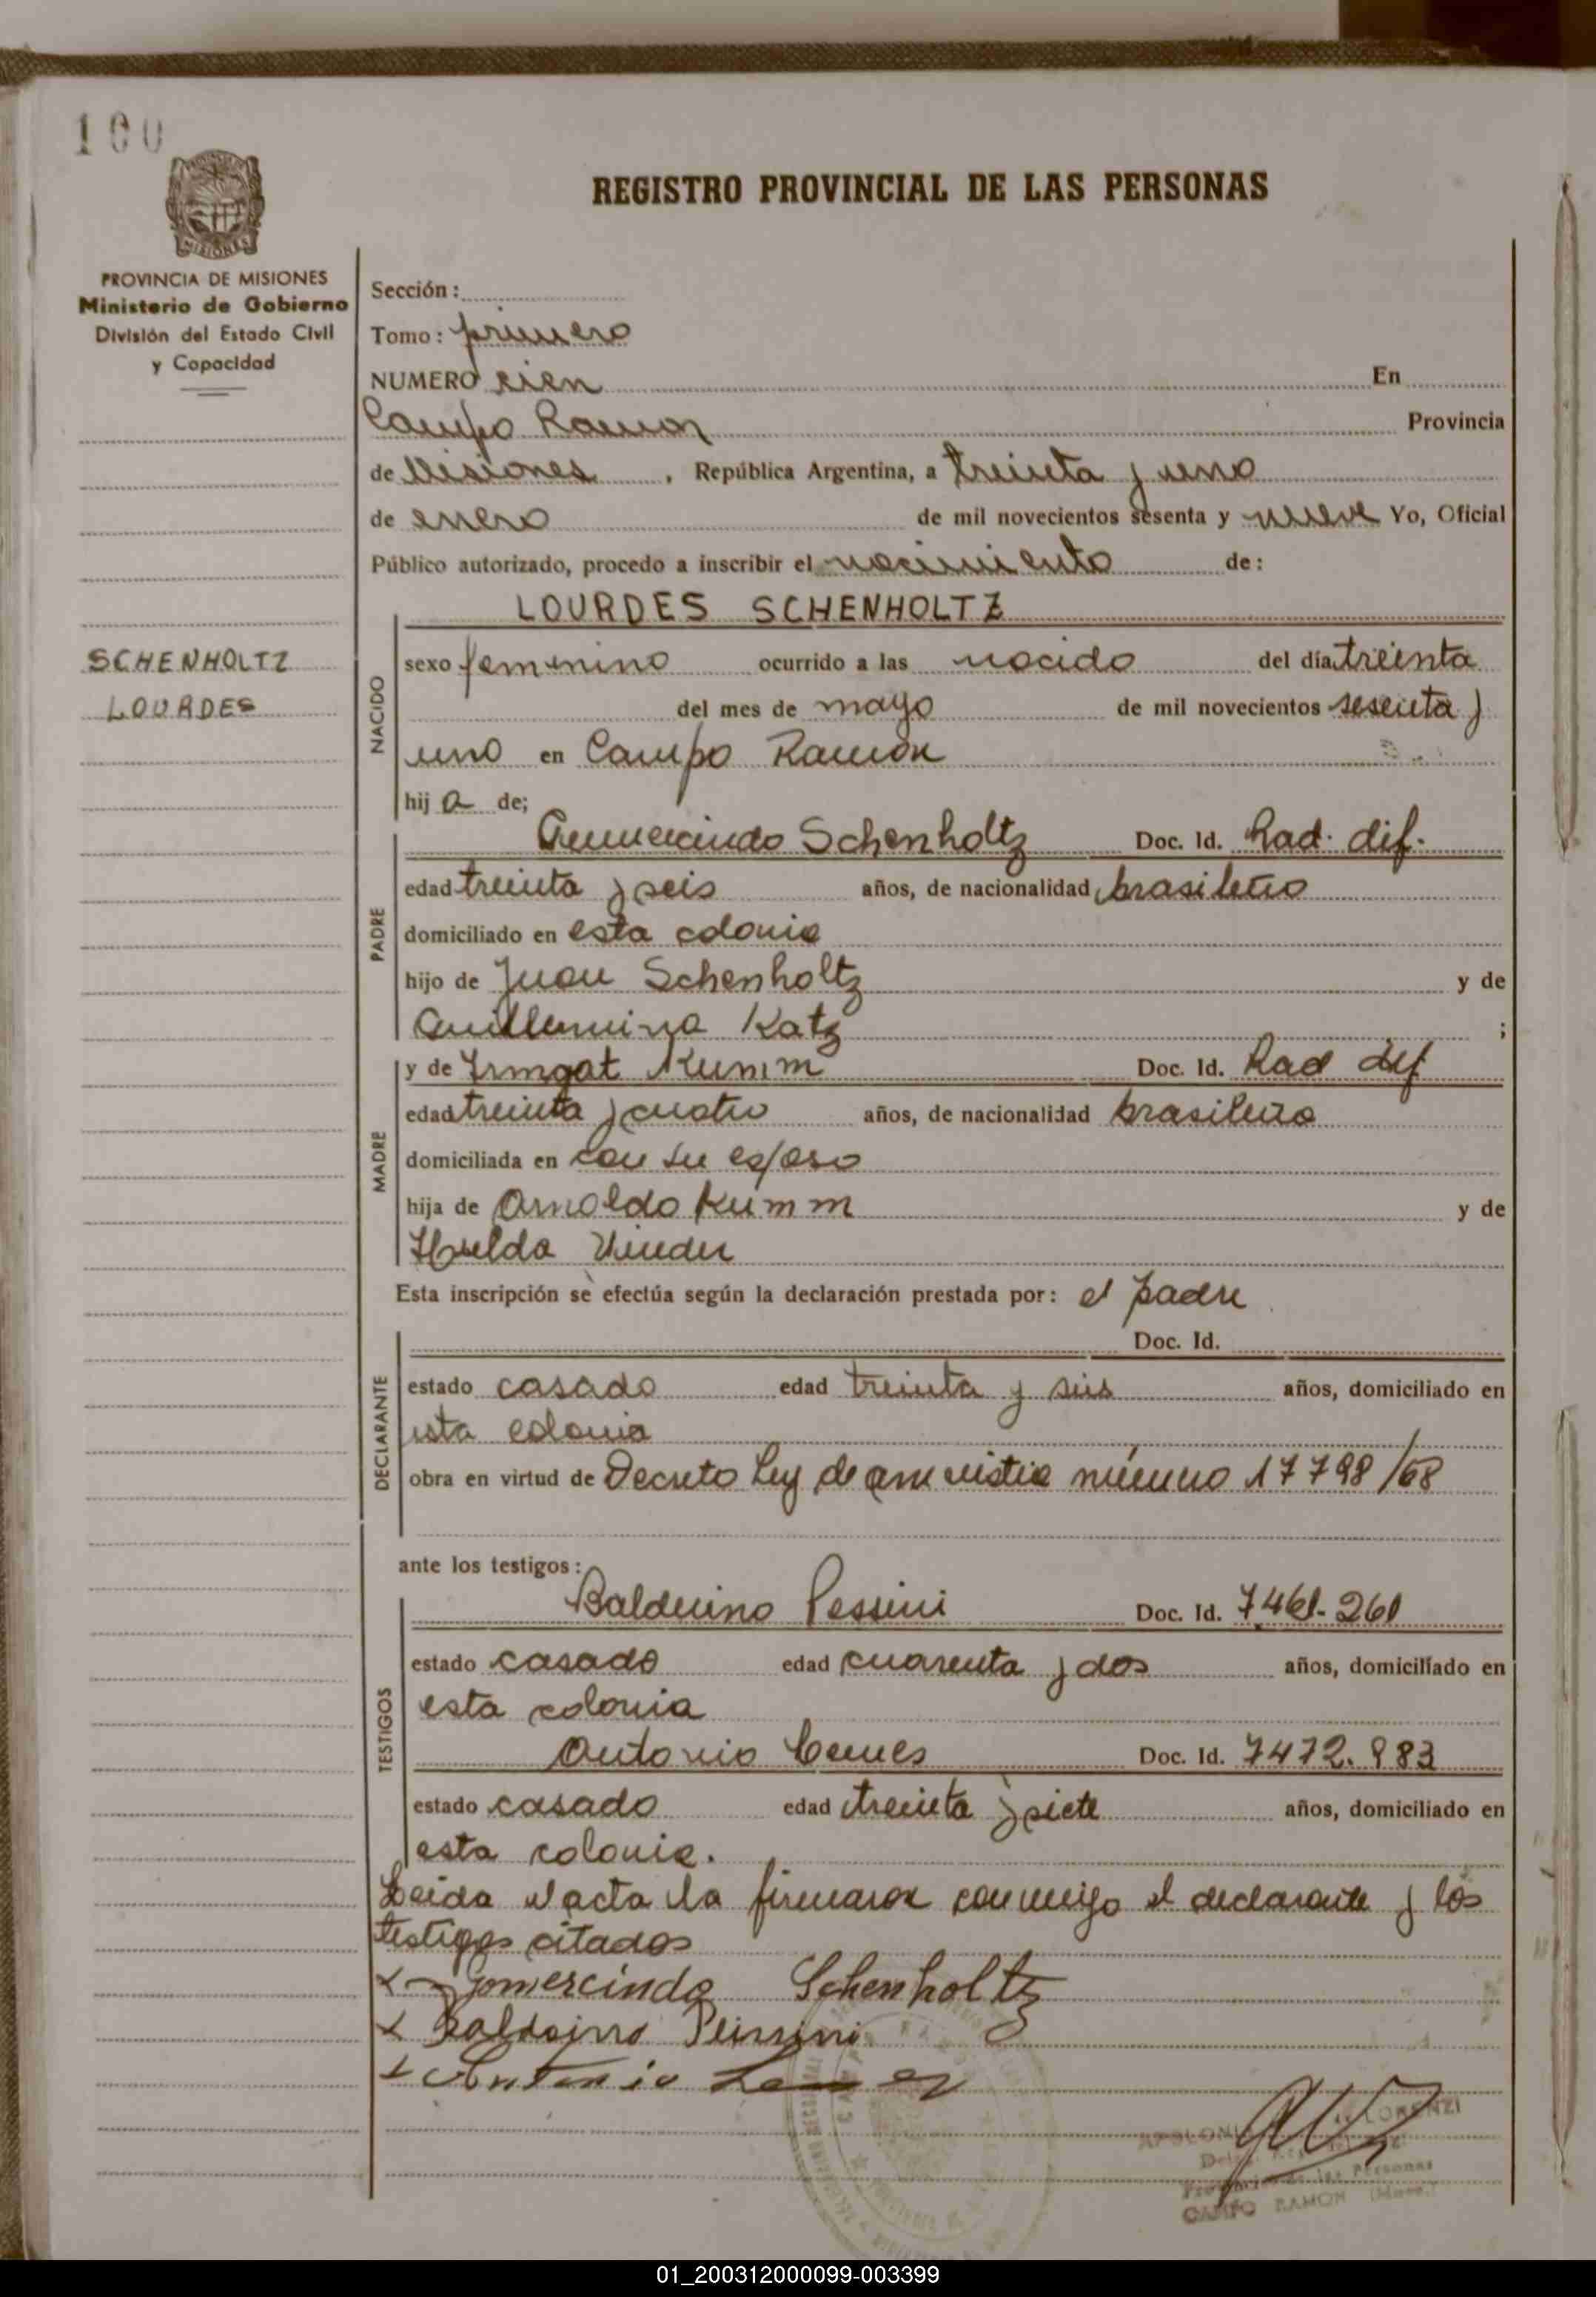 100
REGISTRO PROVINCIAL DE LAS PERSONAS
MISIONES
PROVINCIA DE MISIONES
Ministerio de Gobierno
División del Estado Civil
y Capacidad
SCHENHOLTZ
LOURDES
Sección:
Tomo: primero
NUMERO cien En
Campo Ramon Provincia
de Misiones, República Argentina, a treinta y uno
de enero de mil novecientos sesenta y nueve Yo, Oficial
Público autorizado, procedo a inscribir el nacimiento de:
LOURDES SCHENHOLTZ
NACIDO
sexo femenino ocurrido a las nacido del día treinta
del mes de mayo de mil novecientos sesenta y
uno en Campo Ramon
hij a de;
PADRE
Gumercindo Schenholtz Doc. Id. Rad. dif.
edad treinta y seis años, de nacionalidad brasileño
domiciliado en esta colonia
hijo de Juan Schenholtz y de
Guillermina Katz ;
MADRE
y de Irmgat Kumm Doc. Id. Rad dif
edad treinta y cuatro años, de nacionalidad brasileña
domiciliada en con su esposo
hija de Arnoldo Kumm y de
Hulda
Esta inscripción se efectúa según la declaración prestada por: el padre
DECLARANTE
Doc. Id.
estado casado edad treinta y seis años, domiciliado en
esta colonia
obra en virtud de Decreto Ley de amnistia número 17798/68
ante los testigos:
TESTIGOS
Balduino Pessini Doc. Id. 7461-261
estado casado edad cuarenta y dos años, domiciliado en
esta colonia
Antonio Doc. Id. 7472.983
estado casado edad treinta y siete años, domiciliado en
esta colonia.
Leida el acta la firmaron conmigo el declarante y los
testigos citados
x Gomercindo Schenholtz
x Baldoino
x Antonio
LORENZI
Provincial de las Personas
CAMPO RAMON (Mnes.)
01_200312000099-003399